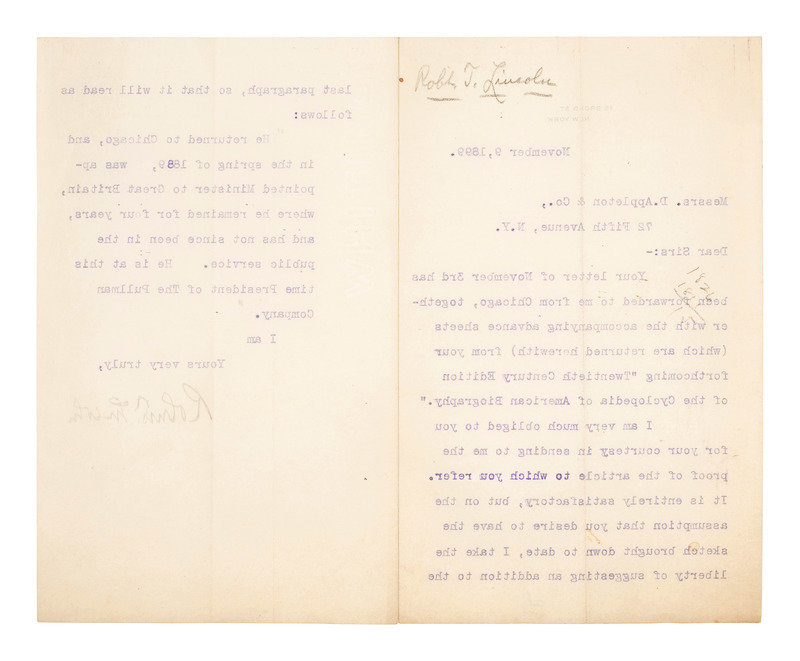 Robt. T. Lincoln
15 BROAD ST.
NEW YORK
November 9,1899.
Messrs. D.Appleton & Co.,
72 Fifth Avenue, N.Y.
Dear Sirs:-
Your letter of November 3rd has
been forwarded to me from Chicago, togeth-
er with the accompanying advance sheets
(which are returned herewith) from your
forthcoming "Twentieth Century Edition
of the Cyclopedia of American Biography."
I am very much obliged to you
for your courtesy in sending to me the
proof of the article to which you refer.
It is entirely satisfactory, but on the
assumption that you desire to have the
sketch brought down to date, I take the
liberty of suggesting an addition to the
last paragraph, so that it will read as
follows:
"He returned to Chicago, and
in the spring of 1889, was ap-
pointed Minister to Great Britain,
where he remained for four years,
and has not since been in the
public service. He is at this
time President of The Pullman
Company."
I am
Yours very truly,
Robert T. Lincoln